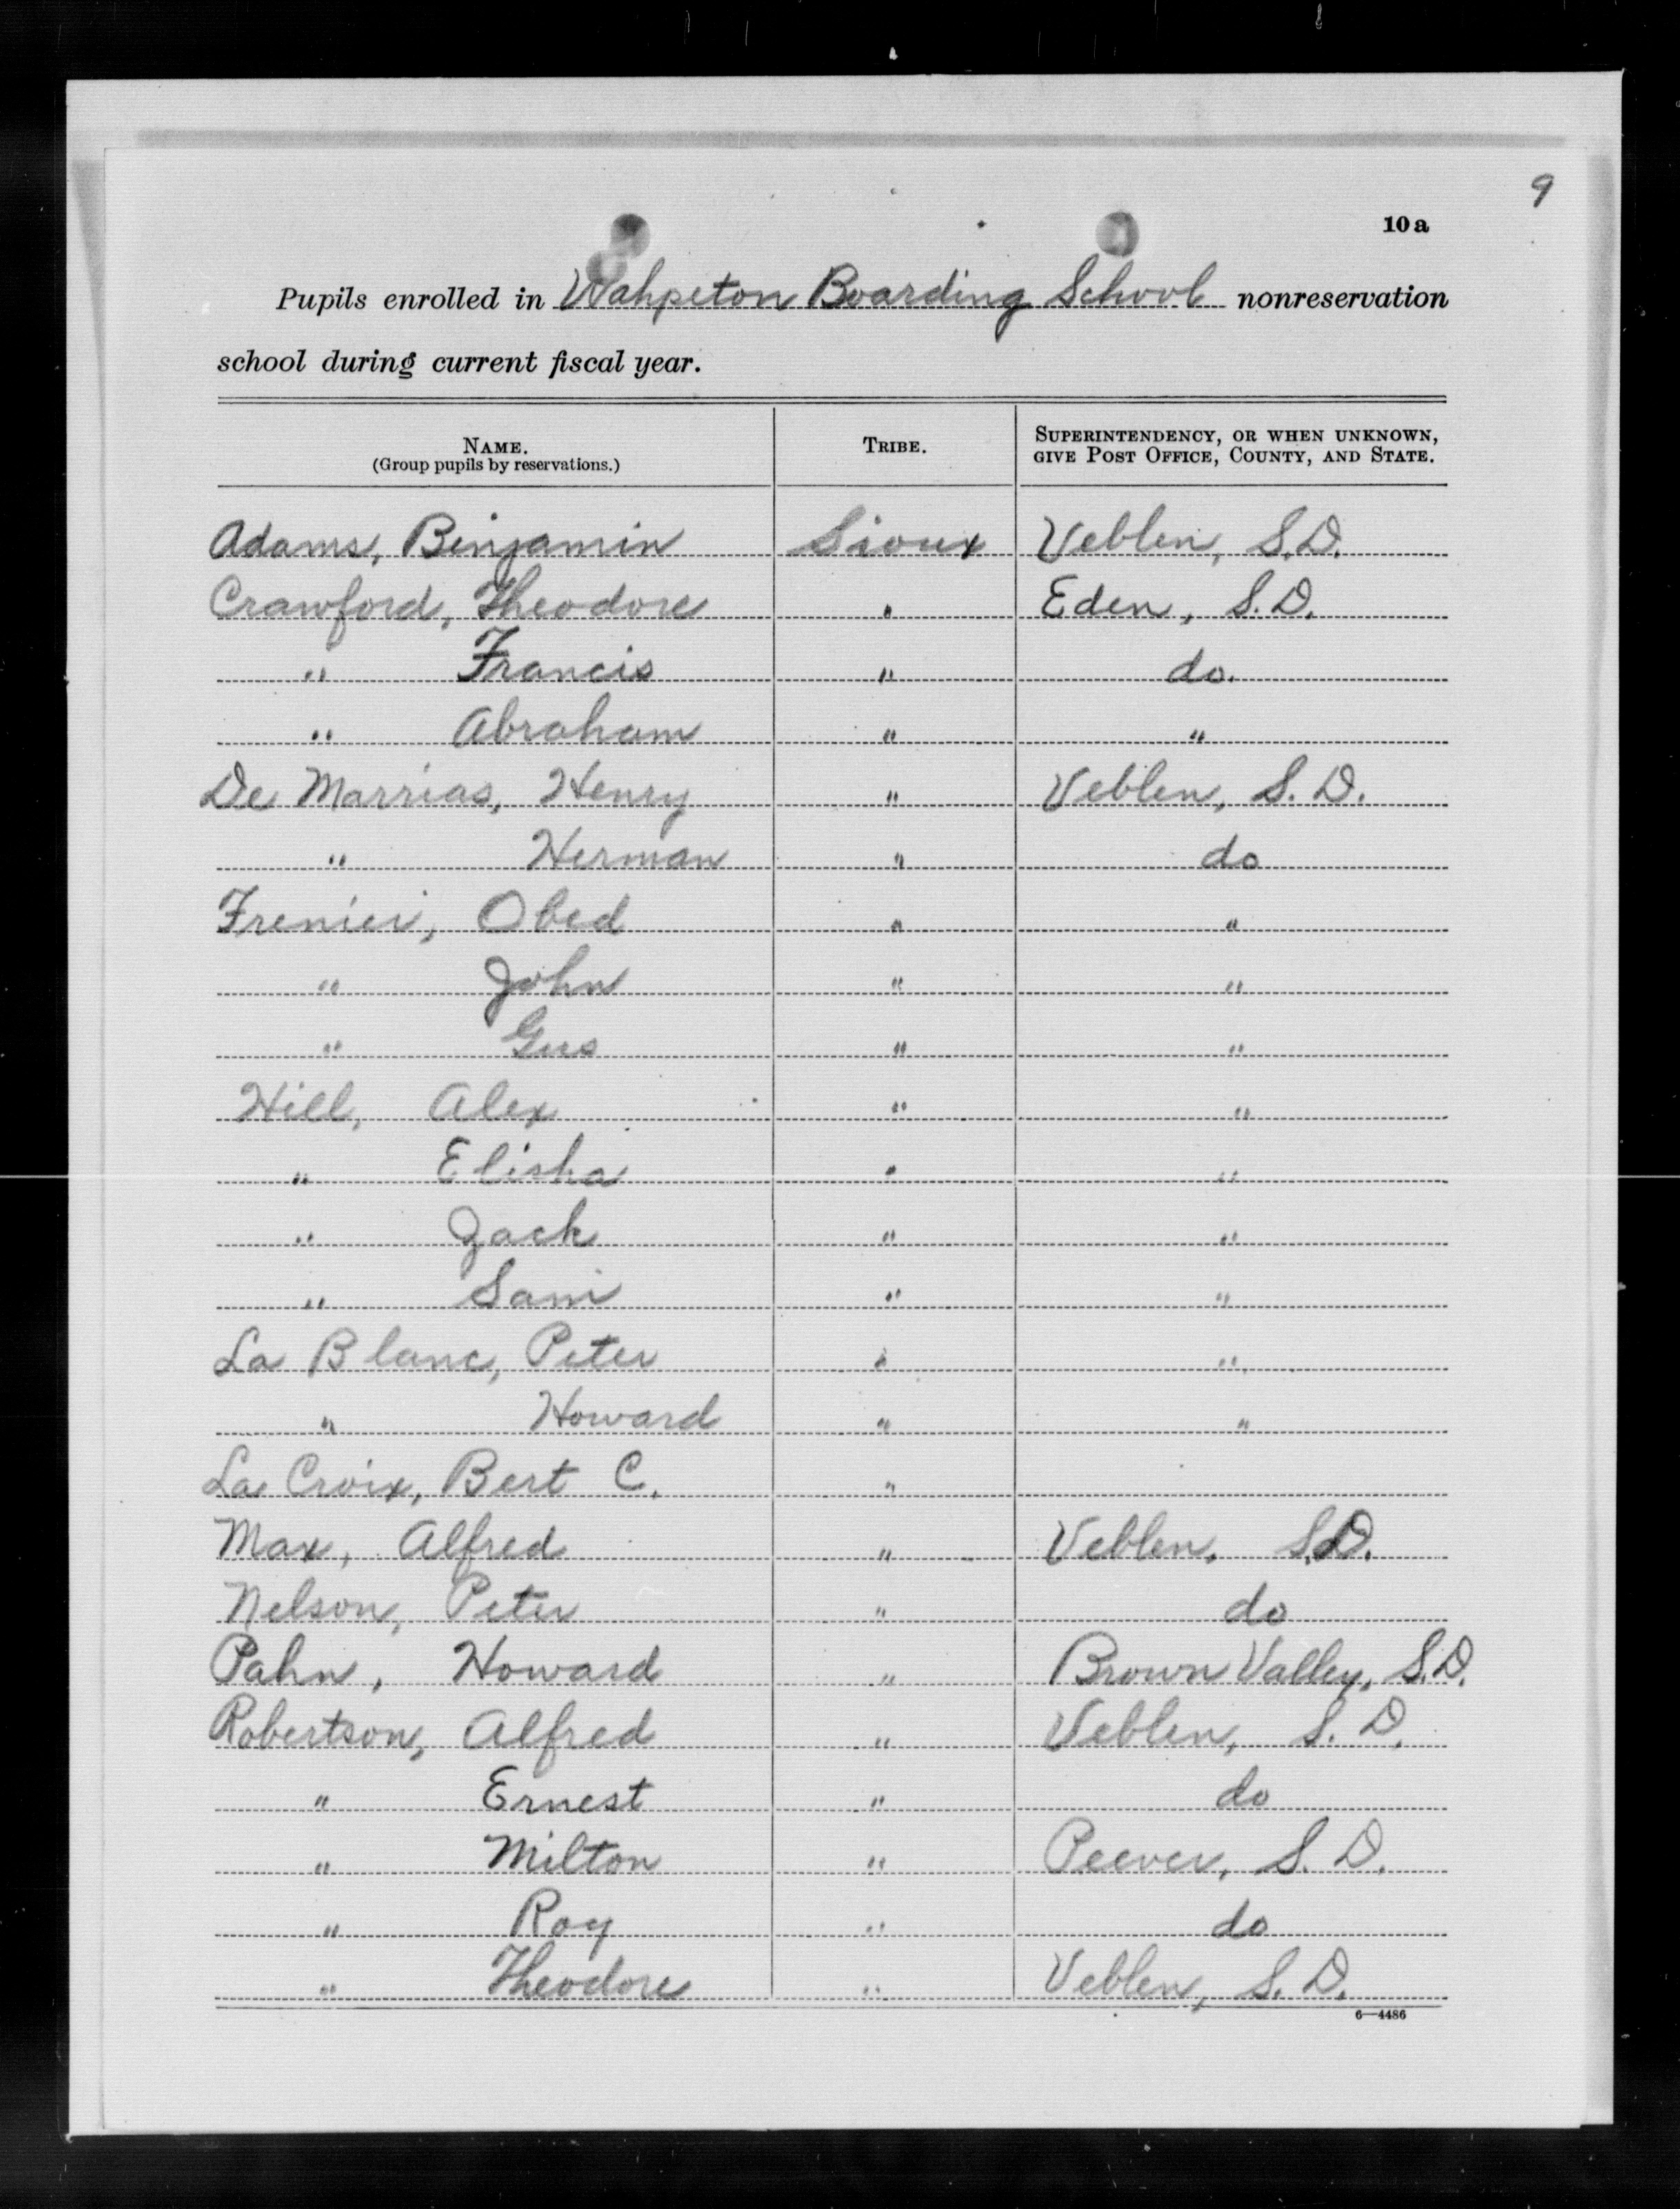 9
10 a
Pupils enrolled in Wahpeton Boarding School nonreservation
school during current fiscal year.
NAME. TRIBE. SUPERINTENDENCY, OR WHEN UNKNOWN,
(Group pupils by reservations.) GIVE POST OFFICE, COUNTY, AND STATE.
Adams, Binjamin Sioux Veblen, S.D.
Crawford, Theodore " Eden, S.D.
" Francis " do.
" Abraham " "
De Marrias, Henry " Veblen, S.D.
" Herman " do
Frenier, Obed " "
" John " "
" Gus " "
Hill, Alex " "
" Elisha " "
" Jack " "
" Sam " "
La Blanc, Peter " "
" Howard " "
La Croix, Bert C. "
Max, Alfred " Veblen, S.D.
Nelson, Peter " do
Pahn, Howard " Brown Valley, S.D.
Robertson, Alfred " Veblen, S.D.
" Ernest " do
" Milton " Peever, S.D.
" Roy " do
" Theodore " Veblen, S.D.
6—4486